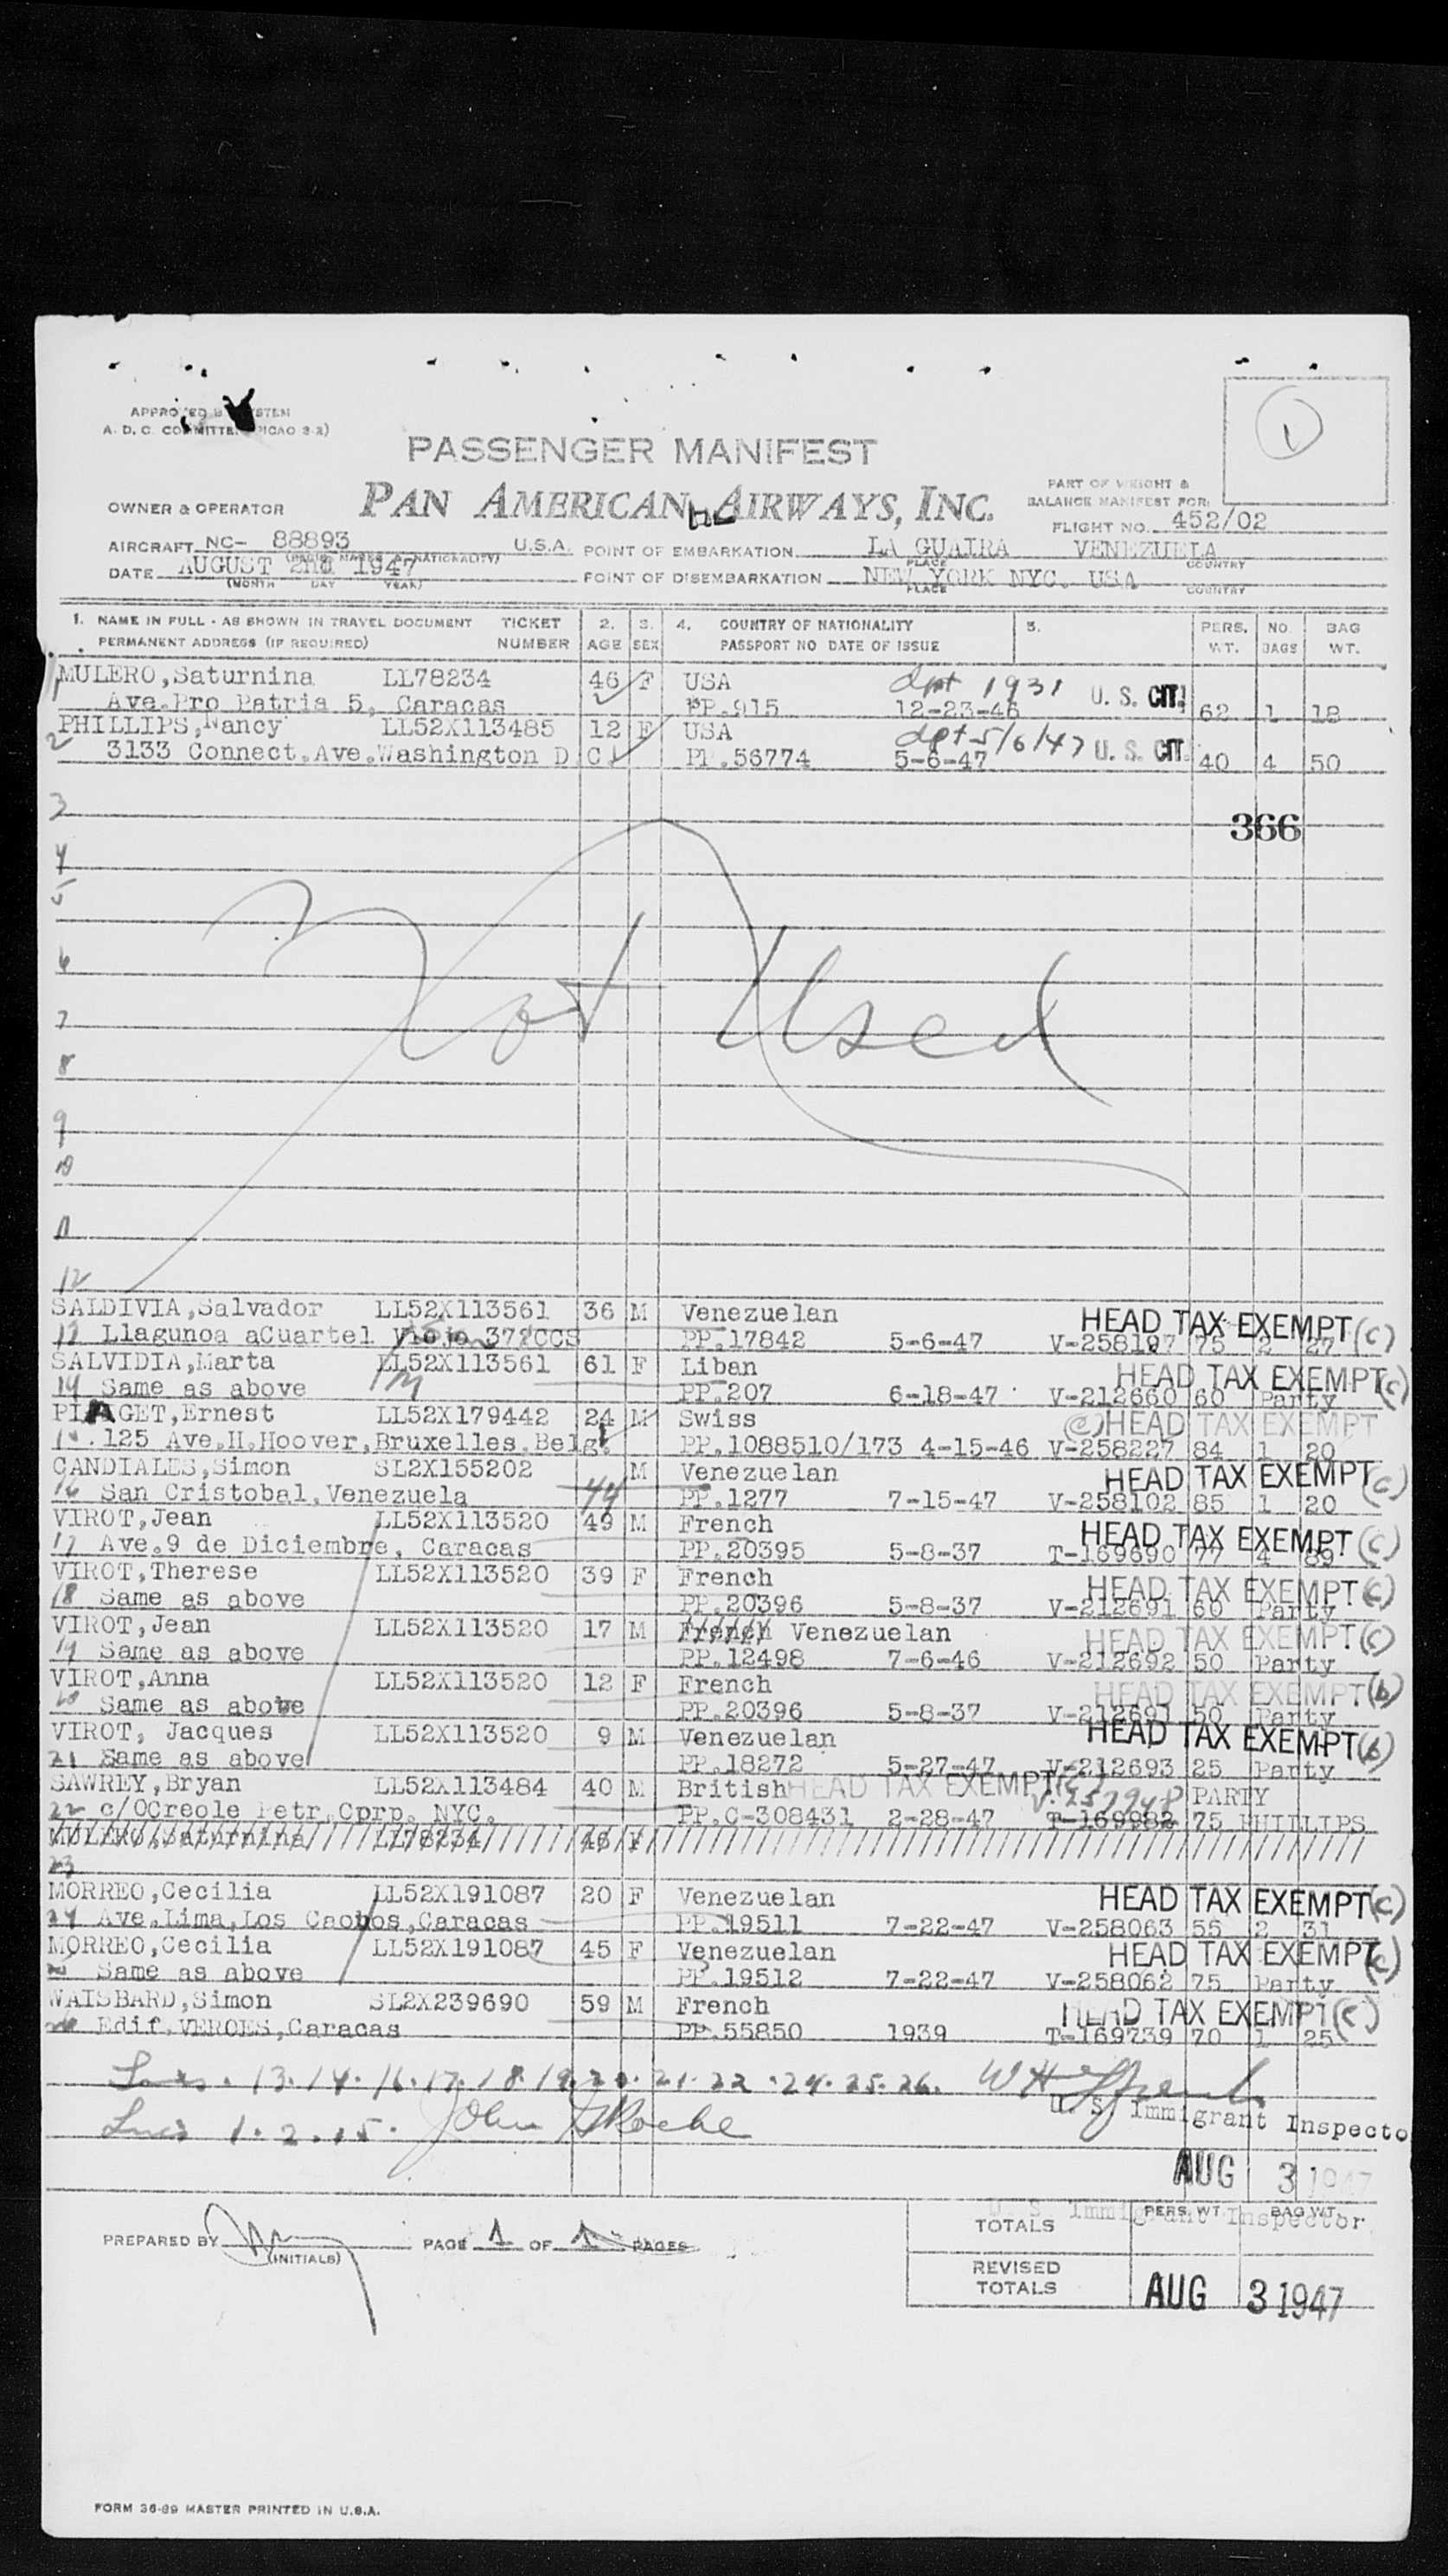 PASSENGER MANIFEST
PAN AMERICAN AIRWAYS, INC.
PART OF WEIGHT &
BALANCE MANIFEST FOR:
OWNER & OPERATOR
FLIGHT NO. 452/02
AIRCRAFT NC- 88893 U.S.A. POINT OF EMBARKATION LA GUAIRA VENEZUELA
PLACE COUNTRY
DATE AUGUST 2nd 1947 POINT OF DISEMBARKATION NEW YORK NYC. USA
(MONTH DAY YEAR) PLACE COUNTRY
1. NAME IN FULL - AS SHOWN IN TRAVEL DOCUMENT TICKET 2. 3. 4. COUNTRY OF NATIONALITY 5. PERS. NO. BAG
PERMANENT ADDRESS (IF REQUIRED) NUMBER AGE SEX PASSPORT NO DATE OF ISSUE WT. BAGS WT.
MULERO,Saturnina LL78234 46 F USA dpt 1931 U. S. CIT.
Ave.Pro Patria 5, Caracas PP.915 12-23-46 62 1 18
PHILLIPS,Nancy LL52X113485 12 F USA dpt 5/6/47 U. S. CIT.
2 3133 Connect.Ave.Washington D C PP.56774 5-6-47 40 4 50
3
366
4
5
6
Not Used
7
8
9
10
11
12
SALDIVIA,Salvador LL52X113561 36 M Venezuelan HEAD TAX EXEMPT (c)
13 Llagunoa aCuartel Viejo 372CCS PP.17842 5-6-47 V-258197 75 2 27
SALVIDIA,Marta LL52X113561 61 F Liban HEAD TAX EXEMPT (c)
14 Same as above PP.207 6-18-47 V-212660 60 Party
PIAGET,Ernest LL52X179442 24 M Swiss (c) HEAD TAX EXEMPT
125 Ave.H.Hoover,Bruxelles.Belg. PP.1088510/173 4-15-46 V-258227 84 1 20
CANDIALES,Simon SL2X155202 44 M Venezuelan HEAD TAX EXEMPT (c)
16 San Cristobal,Venezuela PP.1277 7-15-47 V-258102 85 1 20
VIROT,Jean LL52X113520 49 M French HEAD TAX EXEMPT (c)
17 Ave.9 de Diciembre, Caracas PP.20395 5-8-37 T-169690 77 4 89
VIROT,Therese LL52X113520 39 F French HEAD TAX EXEMPT (c)
18 Same as above PP.20396 5-8-37 V-212691 60 Party
VIROT,Jean LL52X113520 17 M French Venezuelan HEAD TAX EXEMPT (c)
19 Same as above PP.12498 7-6-46 V-212692 50 Party
VIROT,Anna LL52X113520 12 F French HEAD TAX EXEMPT (b)
20 Same as above PP.20396 5-8-37 V-212691 50 Party
VIROT, Jacques LL52X113520 9 M Venezuelan HEAD TAX EXEMPT (b)
21 Same as above PP.18272 5-27-47 V-212693 25 Party
SAWREY,Bryan LL52X113484 40 M British HEAD TAX EXEMPT (c) PARTY
22 c/OCreole Petr.Cprp. NYC. PP.C-308431 2-28-47 T-169982 75 PHILLIPS
MULERO,Saturnina LL78234 46 F
23
MORREO,Cecilia LL52X191087 20 F Venezuelan HEAD TAX EXEMPT (c)
24 Ave.Lima,Los Caobos,Caracas PP.19511 7-22-47 V-258063 55 2 31
MORREO,Cecilia LL52X191087 45 F Venezuelan HEAD TAX EXEMPT (c)
Same as above PP.19512 7-22-47 V-258062 75 Party
WAISBARD,Simon SL2X239690 59 M French HEAD TAX EXEMPT (c)
Edif.VEROES,Caracas PP.55850 1939 T-169739 70 1 25
13. 14. 16. 17. 18. 19. 20. 21. 22. 24. 25. 26.
U. S. Immigrant Inspecto
1. 2. 15. John
AUG 3 1947
U S Immigrant Inspector
PREPARED BY (INITIALS) PAGE 1 OF 1 PAGES TOTALS PERS. WT. BAG WT.
REVISED
TOTALS AUG 3 1947
FORM 36-89 MASTER PRINTED IN U.S.A.